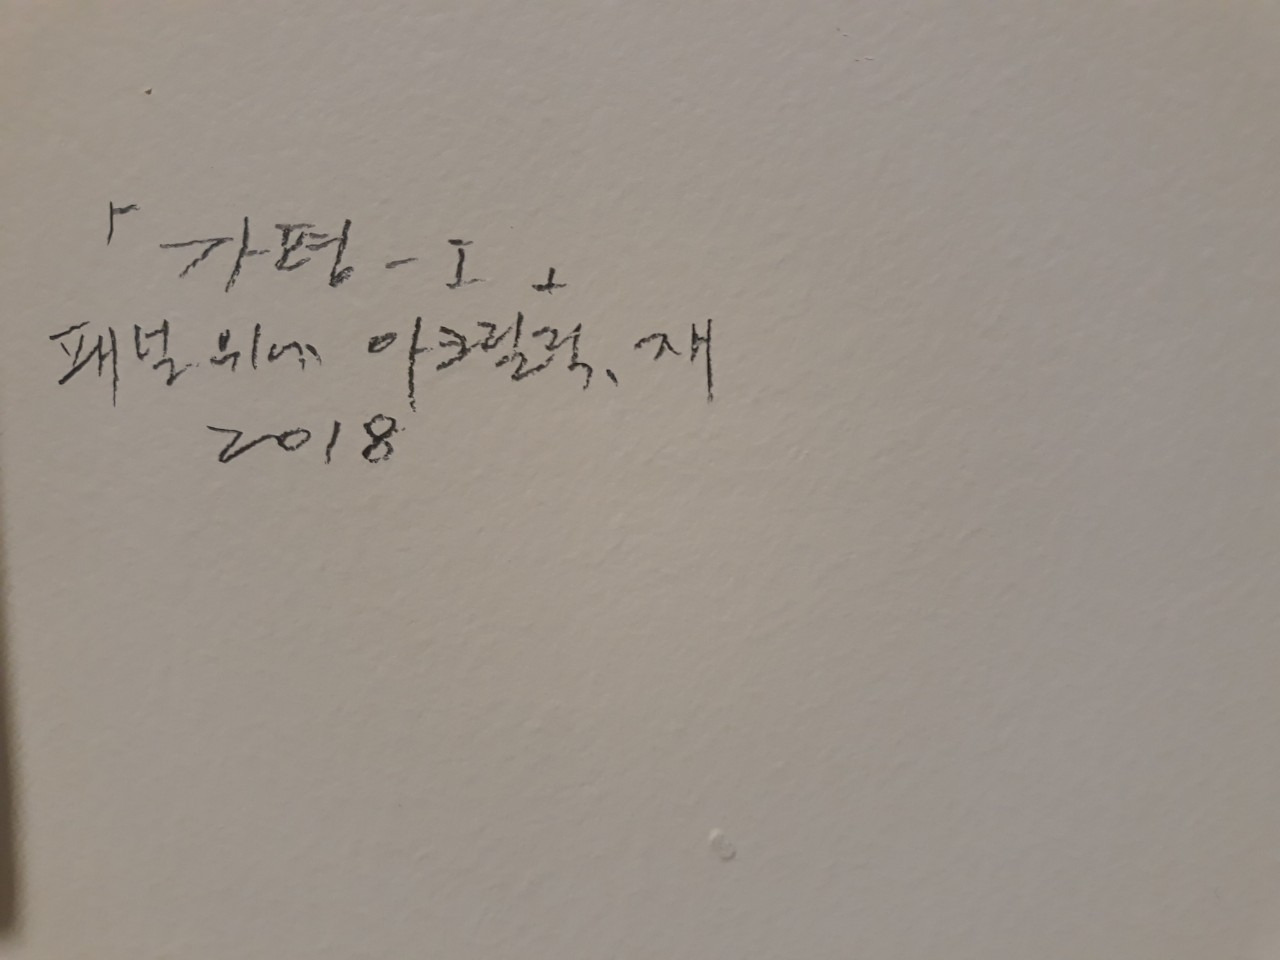 「가평-I」
패널 위에 아크릴릭, 재
2018